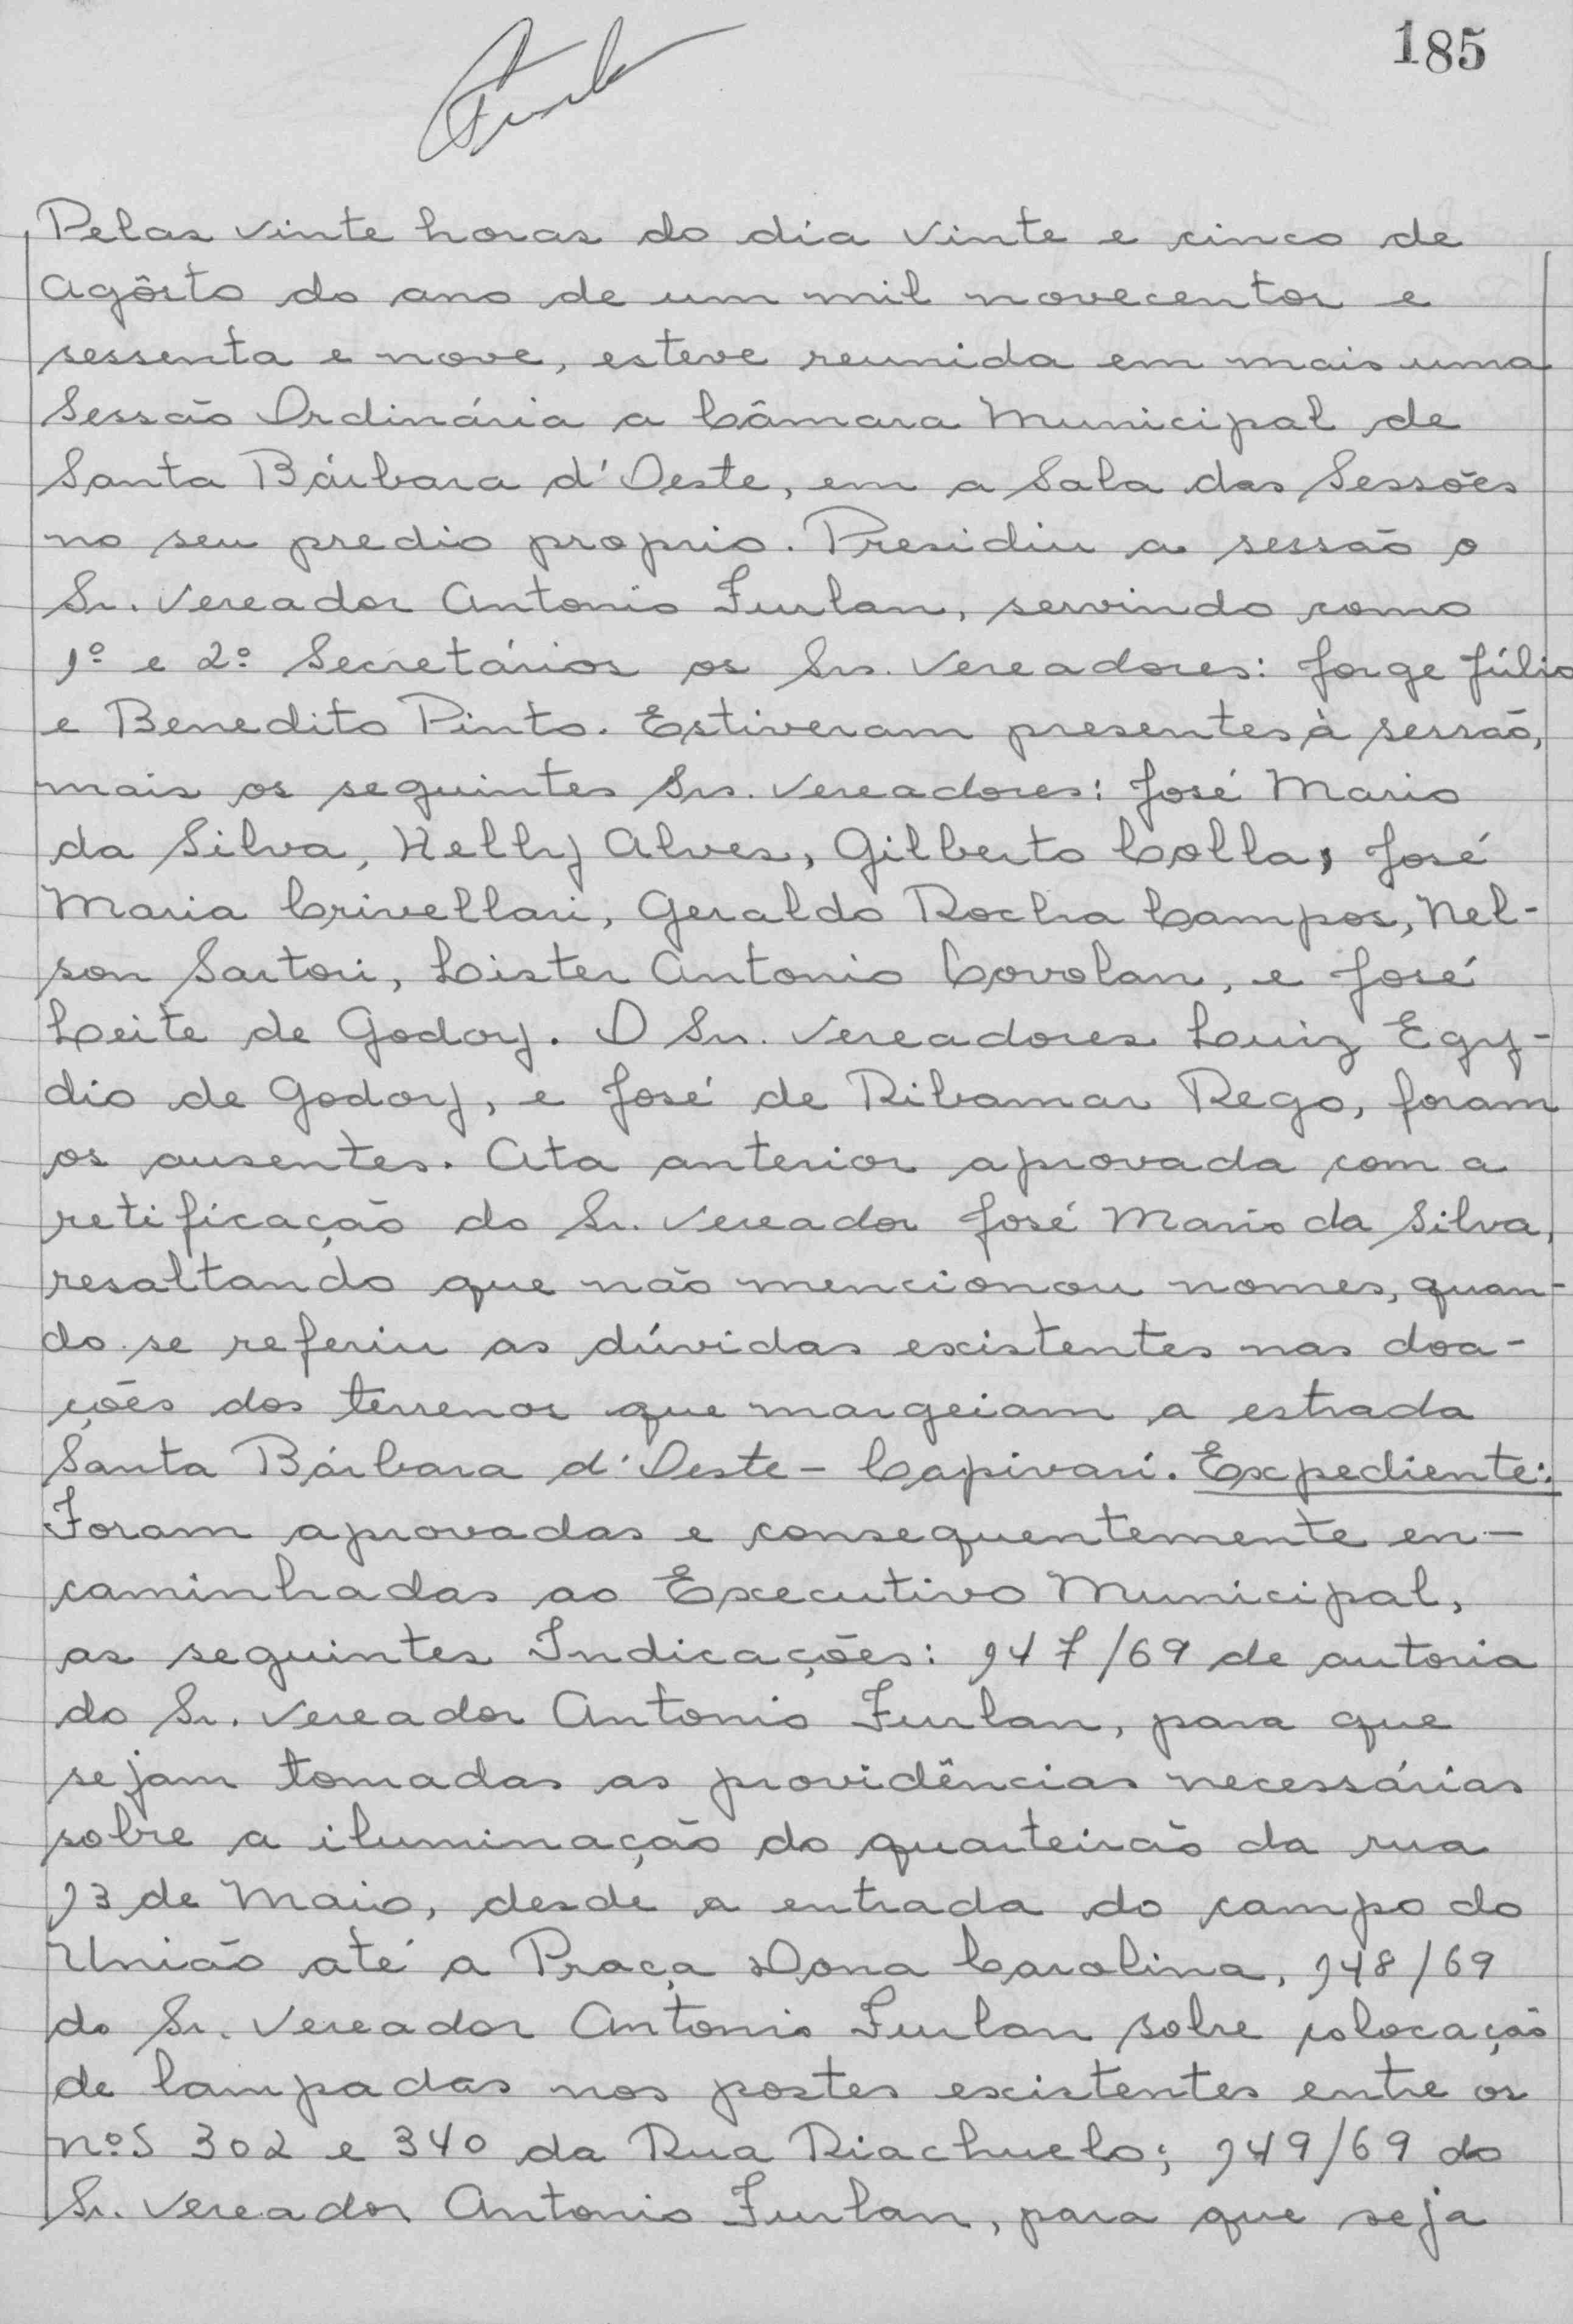 185
Pelas vinte horas do dia vinte e cinco de
Agôsto do ano de um mil novecentos e
sessenta e nove, esteve reunida em mais uma
Sessão Ordinária a Câmara Municipal de
Santa Bárbara d'Oeste, em a Sala das Sessões
no seu predio proprio. Presidiu a sessão o
Sr. Vereador Antonio Furlan, servindo como
1º e 2º Secretários os Srs. Vereadores: Jorge Júlio
e Benedito Pinto. Estiveram presentes à sessão,
mais os seguintes Srs. Vereadores: José Mario
da Silva, Hellhj Alves, Gilberto Colla, José
Maria Crivellari, Geraldo Rocha Campos, Nel-
son Sartori, Lister Antonio Covolan, e José
Leite de Godoy. O Sr. Vereadores Luiz Egy-
dio de Godoy, e José de Ribamar Rego, foram
os ausentes. Ata anterior aprovada com a
retificação do Sr. Vereador José Mario da Silva,
resaltando que não mencionou nomes, quan-
do se referiu as dúvidas existentes nas doa-
ções dos terrenos que margeiam a estrada
Santa Bárbara d'Oeste - Capivari. Expediente:
Foram aprovadas e consequentemente en-
caminhadas ao Executivo Municipal,
as seguintes Indicações: 147/69 de autoria
do Sr. Vereador Antonio Furlan, para que
sejam tomadas as providências necessárias
sobre a iluminação do quarteirão da rua
13 de Maio, desde a entrada do campo do
União até a Praça Dona Carolina, 148/69
do Sr. Vereador Antonio Furlan sobre colocação
de lampadas nos postes existentes entre os
nºs 302 e 340 da Rua Riachuelo; 149/69 do
Sr. Vereador Antonio Furlan, para que seja